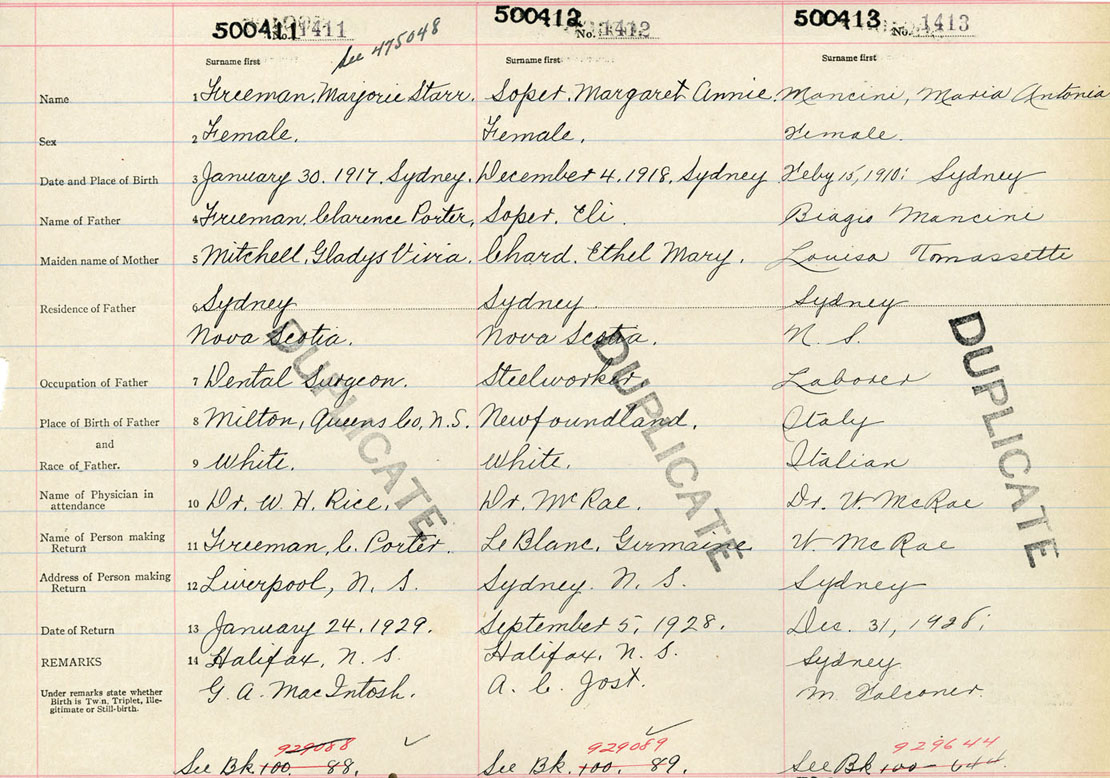 500411 No. 1411 500412 No. 1412 500413 No. 1413
See 475048
Surname first Surname first Surname first
Name 1 Freeman, Marjorie Starr. Soper, Margaret Annie. Mancini, Maria Antonia
Sex 2 Female. Female. Female.
Date and Place of Birth 3 January 30. 1917. Sydney. December 4, 1918, Sydney Feby 15, 1910: Sydney
Name of Father 4 Freeman, Clarence Porter, Soper, Eli Biagio Mancini
Maiden name of Mother 5 Mitchell, Gladys Vivia. Chard. Ethel Mary. Louisa Tomassette
Residence of Father 6 Sydney Sydney Sydney
Nova Scotia. Nova Scotia. N. S.
DUPLICATE DUPLICATE DUPLICATE
Occupation of Father 7 Dental Surgeon. Steelworker Laborer
Place of Birth of Father 8 Milton, Queens Co, N.S. Newfoundland. Italy
and
Race of Father. 9 White. White. Italian
Name of Physician in attendance 10 Dr. W. H. Rice. Dr. McRae. Dr. W. McRae
Name of Person making Return 11 Freeman, C. Porter. Le Blanc, Germaine W. McRae
Address of Person making Return 12 Liverpool, N. S. Sydney. N. S. Sydney
Date of Return 13 January 24. 1929. September 5, 1928. Dec. 31, 1928.
REMARKS 14 Halifax, N. S. Halifax, N. S. Sydney
Under remarks state whether Birth is Twin, Triplet, Illegitimate or Still-birth. G. A. MacIntosh. A. C. Jost. M. Falconer.
929088 929089 929644
See Bk. 100. 88. See Bk. 100. 89. See Bk 100 - 644.